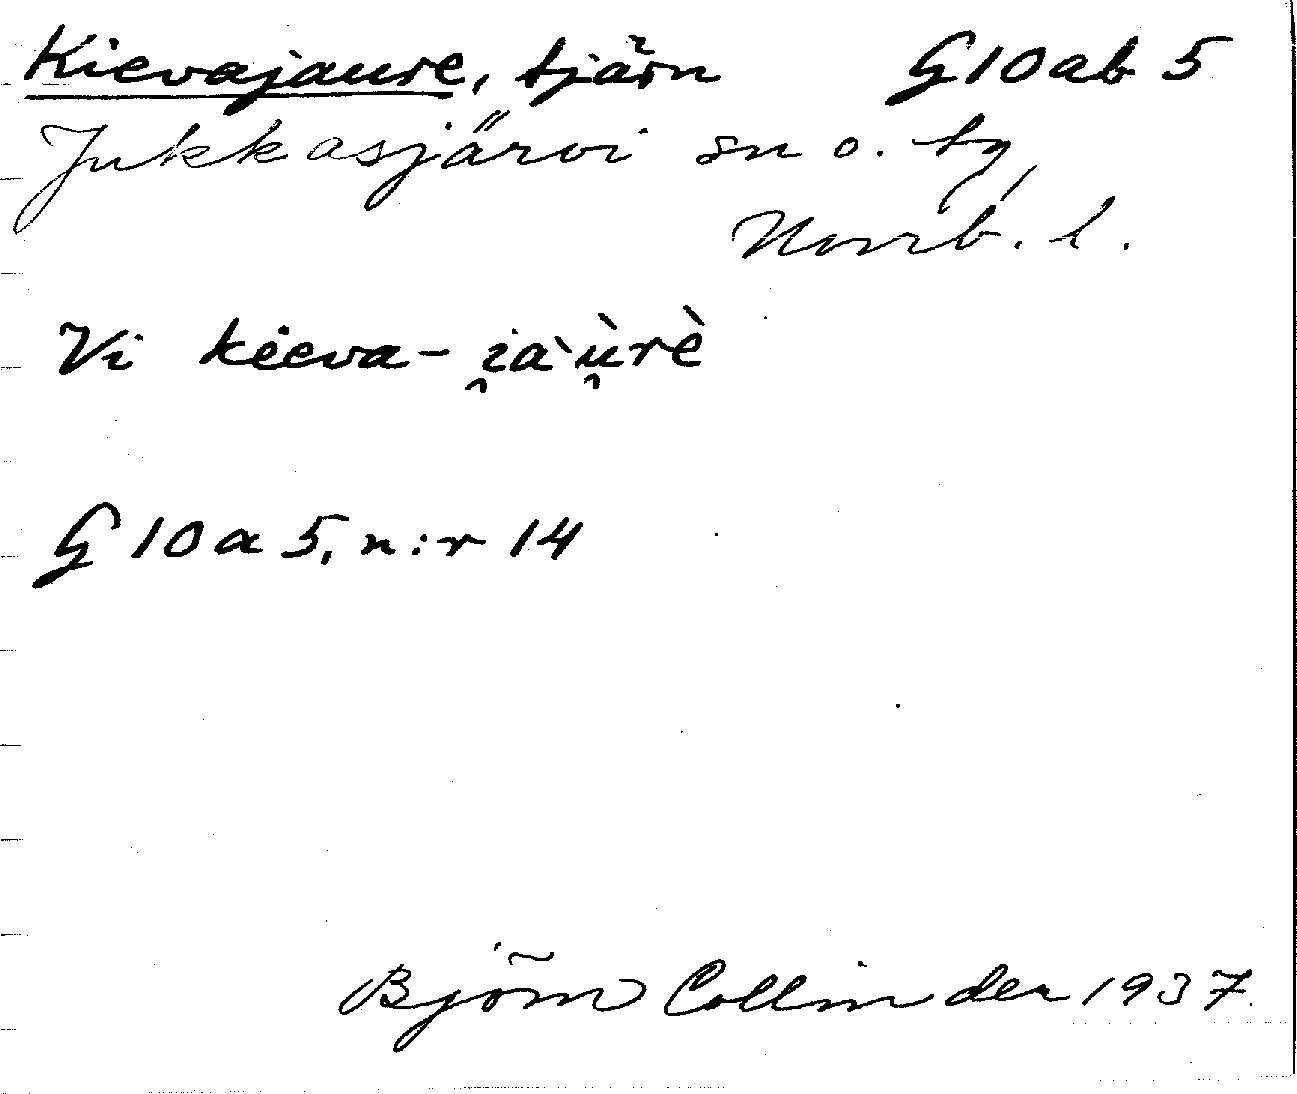 Kievajaure, tjärn G10ab 5
Jukkasjärvi sn o. tg,
Norrb. l.
Vi kieva- i̯a`ù̯rè
G 10 a 5, n:r 14
Björn Collinder 1937.